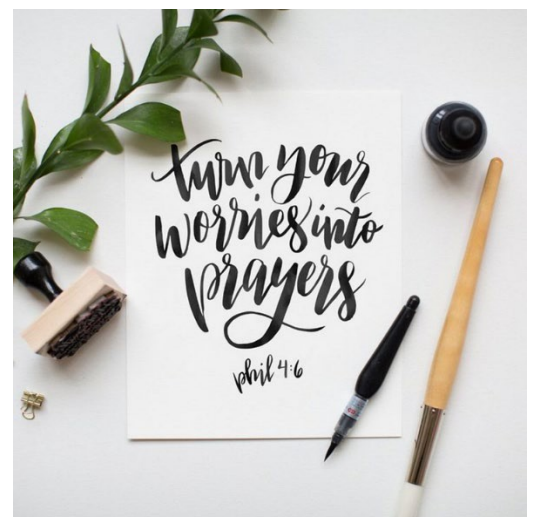 turn your
worries into
prayers
phil 4:6